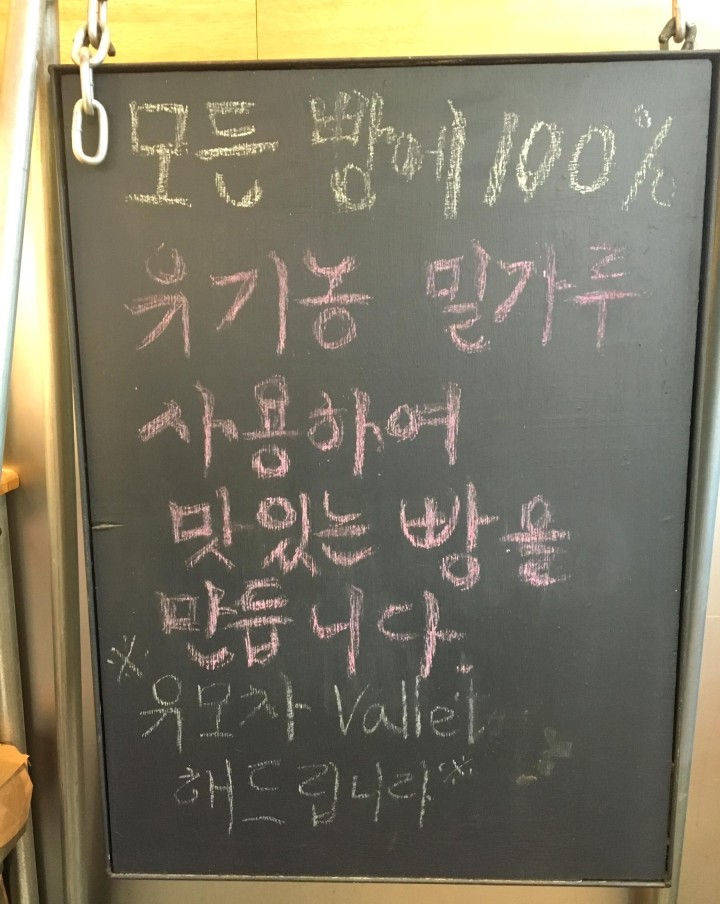 모든 빵에 100%
유기농 밀가루
사용하여
맛있는 빵을
만듭니다.
※ 유모차 Vallet
해드립니다※